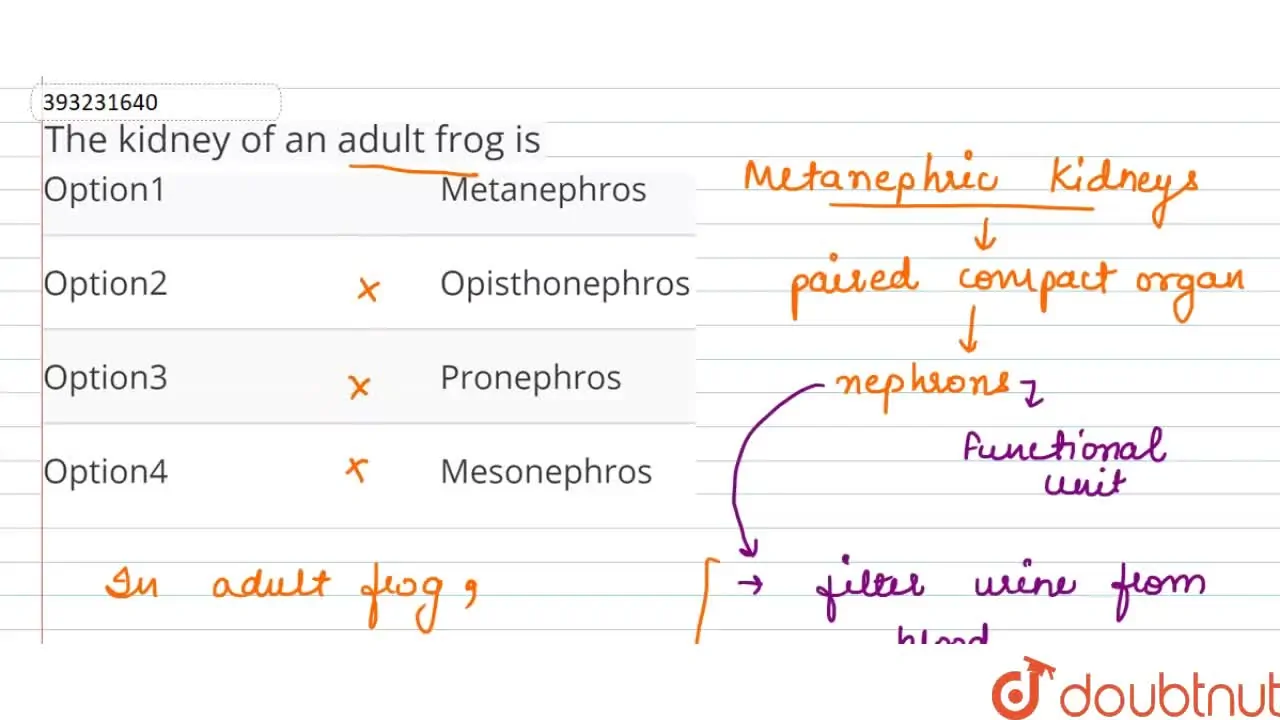 393231640
The kidney of an adult frog is
Option1 Metanephros
Option2 x Opisthonephros
Option3 x Pronephros
Option4 x Mesonephros
In adult frog,
Metanephric Kidneys
paired compact organ
nephrons
Functional
unit
filter urine from
blood
doubtnut